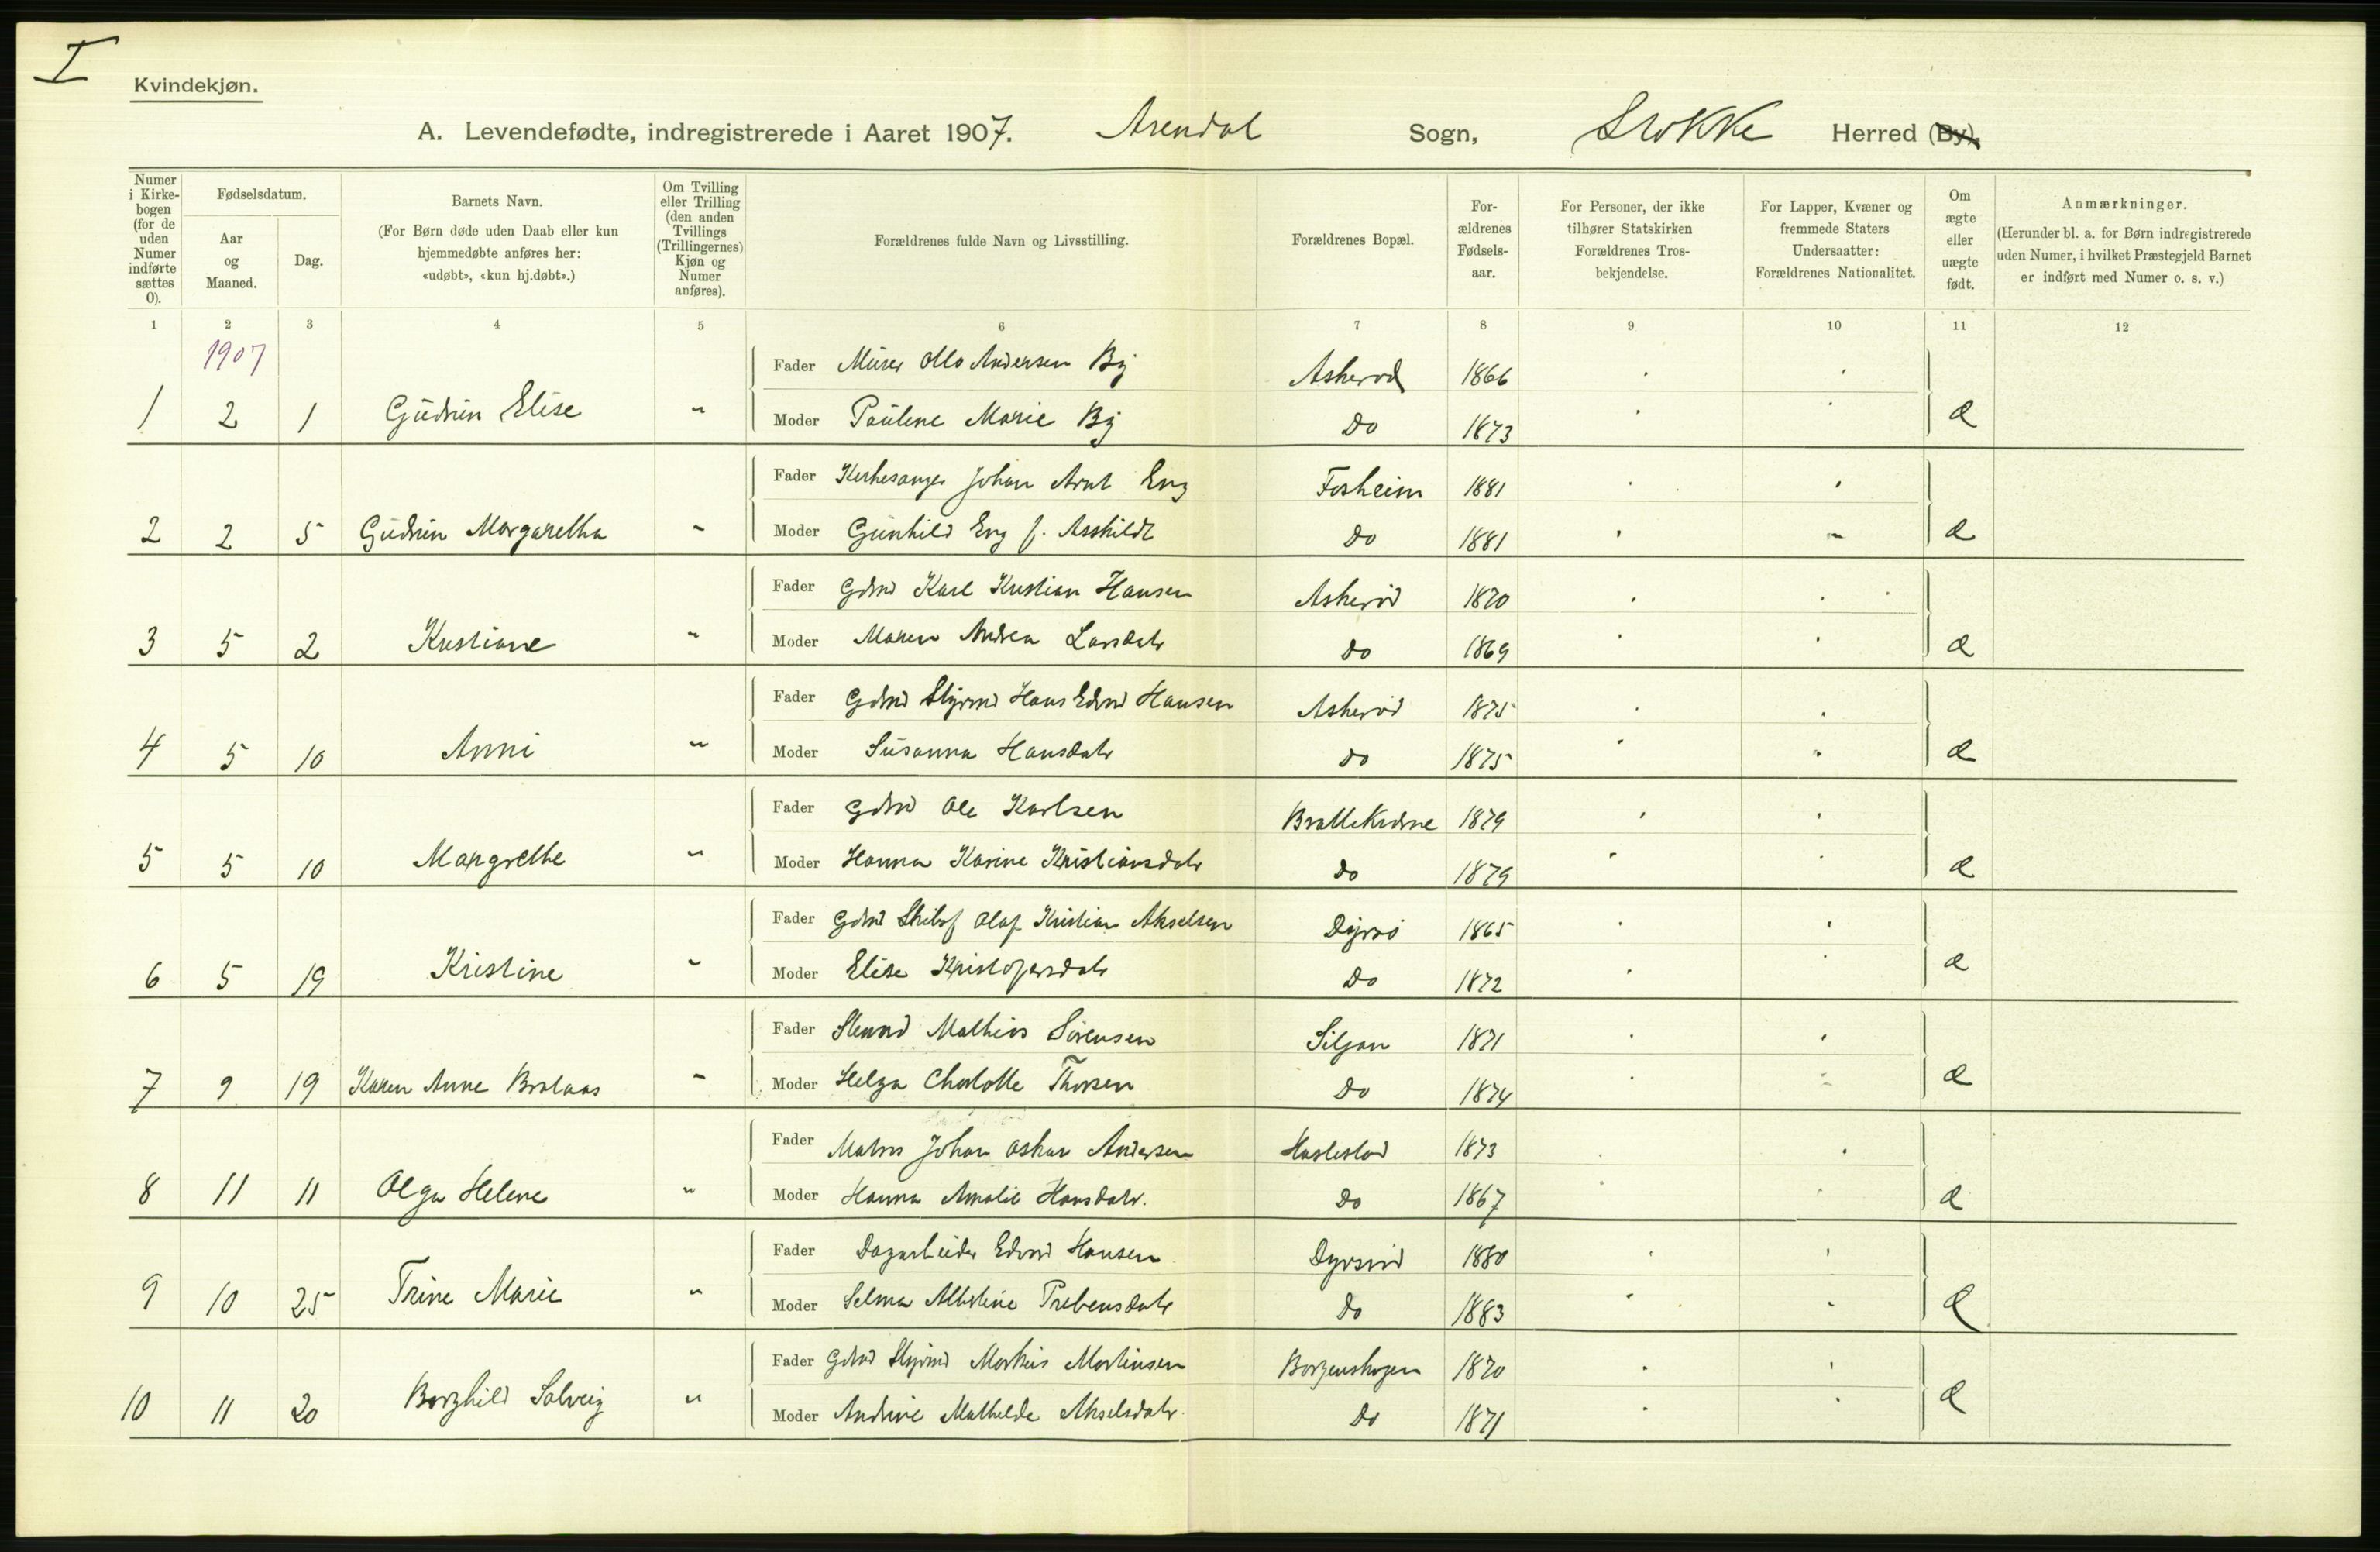 I
Kvindekjøn.
A. Levendefødte, indregistrerede i Aaret 1907. Arendal Sogn, Stokke Herred (By).
Numer i Kirkebogen (for de uden Numer indførte sættes 0).
Fødselsdatum.
Aar og Maaned.
Dag.
Barnets Navn.
(For Børn døde uden Daab eller kun hjemmedøbte anføres her: «udøbt», «kun hj.døbt».)
Om Tvilling eller Trilling (den anden Tvillings (Trillingernes) Kjøn og Numer anføres).
Forældrenes fulde Navn og Livsstilling.
Forældrenes Bopæl.
Forældrenes Fødselsaar.
For Personer, der ikke tilhører Statskirken Forældrenes Trosbekjendelse.
For Lapper, Kvæner og fremmede Staters Undersaatter: Forældrenes Nationalitet.
Om ægte eller uægte født.
Anmærkninger.
(Herunder bl. a. for Børn indregistrerede uden Numer, i hvilket Præstegjeld Barnet er indført med Numer o. s. v.)
1 2 3 4 5 6 7 8 9 10 11 12
1907
Fader Murer Otto Andersen By Askerød 1866
1 2 1 Gudrun Elise " Moder Pauline Marie By Do 1873 æ
Fader Kirkesanger Johan Arnt Eng Fosheim 1881
2 2 5 Gudrun Margaretha " Moder Gunhild Eng f. Asskildt Do 1881 æ
Fader Gdmd Karl Kristian Hansen Askerød 1870
3 5 2 Kristiane " Moder Maren Andrea Larsdatr Do 1869 æ
Fader Gdmd Styrmd Hans Edvard Hansen Askerød 1875
4 5 10 Anni " Moder Susanna Hansdatr Do 1875 æ
Fader Gdmd Ole Karlsen 1879
5 5 10 Margrethe " Moder Hanna Karine Kristiansdatr Do 1879 æ
Fader Gdmd Skibsf Olaf Kristian Akselsen Dyrsø 1865
6 5 19 Kristine " Moder Elise Kristofersdatr Do 1872 æ
Fader Mathias Sørensen Siljan 1871
7 9 19 Karen Anne Bralaas " Moder Helga Charlotte Thorsen Do 1874 æ
Fader Matros Johan Oskar Andersen Haslestad 1873
8 11 11 Olga Helene " Moder Hanna Amalie Hansdatr. Do 1867 æ
Fader Dagarbeider Edvard Hansen Dyrsød 1880
9 10 25 Trine Marie " Moder Selma Albertine Prebensdatr Do 1883 æ
Fader Gdmd Styrmd Markus Martinsen Borgenskogen 1870
10 11 20 Borghild Solveig " Moder Andrine Mathilde Akselsdatr. Do 1871 æ